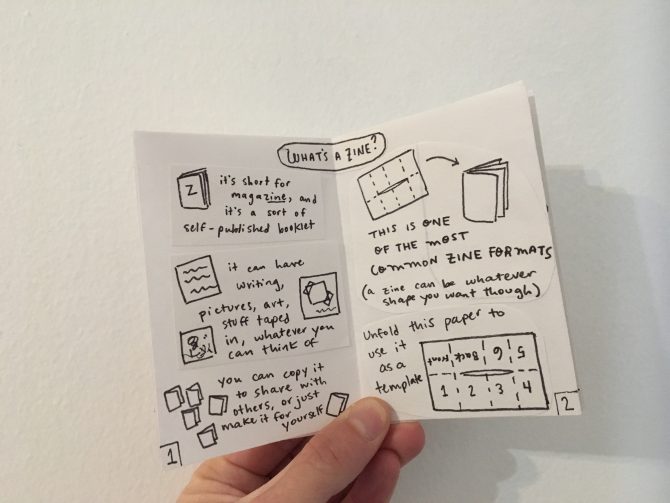 WHAT'S A ZINE?
Z
it's short for
magazine, and
it's a sort of
self-published booklet
it can have
writing,
pictures, art,
stuff taped
in, whatever you
can think of
you can copy it
to share with
others, or just
make it for
yourself
1
THIS IS ONE
OF THE MOST
COMMON ZINE FORMATS
(a zine can be whatever
shape you want though)
Unfold this paper to
use it
as a
template
Front Back 6 5
1 2 3 4
2